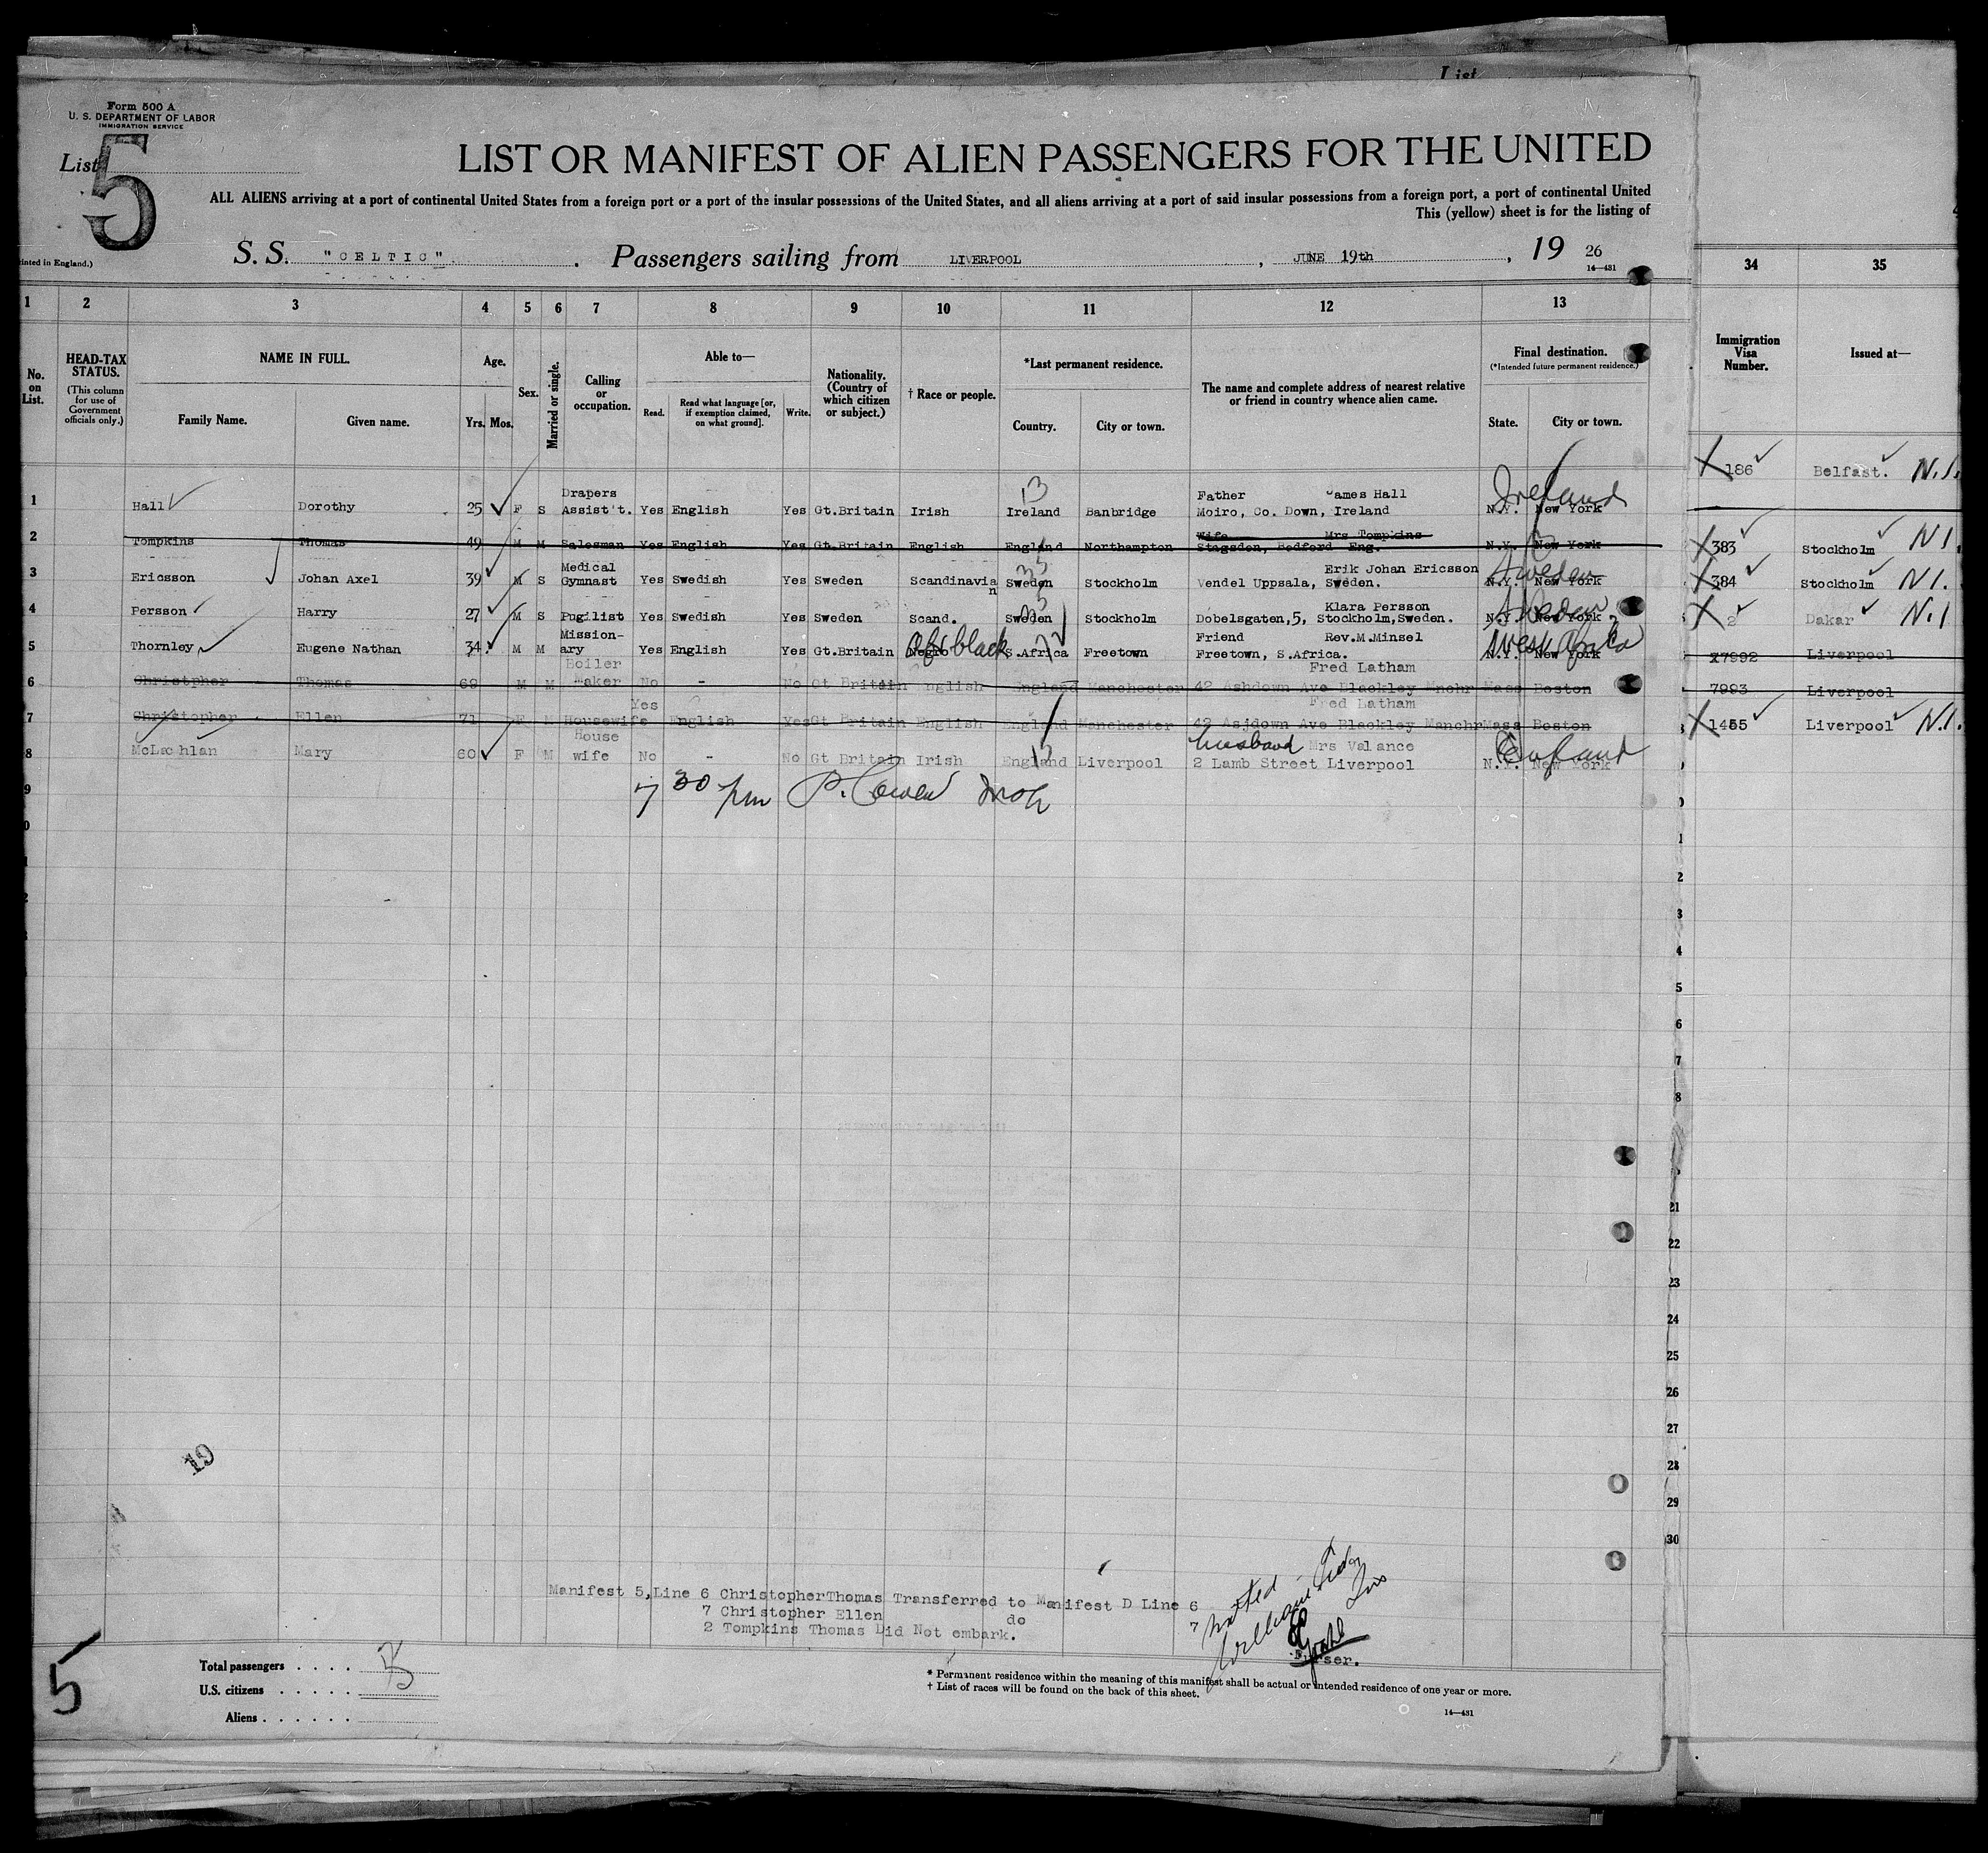 List
Form 500 A
U. S. DEPARTMENT OF LABOR
IMMIGRATION SERVICE
List 5
LIST OR MANIFEST OF ALIEN PASSENGERS FOR THE UNITED
ALL ALIENS arriving at a port of continental United States from a foreign port or a port of the insular possessions of the United States, and all aliens arriving at a port of said insular possessions from a foreign port, a port of continental United
This (yellow) sheet is for the listing of
S. S. "CELTIC" . Passengers sailing from LIVERPOOL , JUNE 19th , 19 26
inted in England.)
14—431
1 2 3 4 5 6 7 8 9 10 11 12 13 34 35
No. on List.
HEAD-TAX STATUS.
(This column for use of Government officials only.)
NAME IN FULL.
Family Name. Given name.
Age.
Yrs. Mos.
Sex.
Married or single.
Calling or occupation.
Able to—
Read. Read what language [or, if exemption claimed, on what ground]. Write.
Nationality. (Country of which citizen or subject.)
† Race or people.
*Last permanent residence.
Country. City or town.
The name and complete address of nearest relative or friend in country whence alien came.
Final destination.
(*Intended future permanent residence.)
State. City or town.
Immigration Visa Number.
Issued at—
186 Belfast. N.I.
1 Hall Dorothy 25 F S Drapers Assist't. Yes English Yes Gt.Britain Irish 13 Ireland Banbridge Father James Hall Moiro, Co. Down, Ireland N.Y. New York Ireland
2 Tompkins Thomas 49 M M Salesman Yes English Yes Gt.Britain English England Northampton Wife Mrs Tompkins Stagsden, Bedford Eng. N.Y. New York
383 Stockholm N.I.
3 Ericsson Johan Axel 39 M S Medical Gymnast Yes Swedish Yes Sweden Scandinavian Sweden Stockholm Erik Johan Ericsson Vendel Uppsala, Sweden. N.Y. New York Sweden
384 Stockholm N.I.
4 Persson Harry 27 M S Pugilist Yes Swedish Yes Sweden Scand. Sweden Stockholm Klara Persson Dobelsgaten,5, Stockholm,Sweden. N.Y. New York Sweden
2 Dakar N.I
5 Thornley Eugene Nathan 34 M M Mission-ary Yes English Yes Gt.Britain Negro Afr black S.Africa Freetown Friend Rev.M.Minsel Freetown, S.Africa. N.Y. New York West Africa
27992 Liverpool
6 Christpher Thomas 69 M M Boiler maker No - No Gt Britain English England Manchester Fred Latham 42 Ashdown Ave Blackley Mnchr Mass Boston
7993 Liverpool
7 Christopher Ellen 71 F M Housewife Yes English Yes Gt Britain English England Manchester Fred Latham 42 Asjdown Ave Blackley Manchr Mass Boston
1455 Liverpool N.I.
8 McLachlan Mary 60 F M House wife No - No Gt Britain Irish England Liverpool husband Mrs Valance 2 Lamb Street Liverpool N.Y. New York England
9
7 30 pm P.
0
1
2
3
4
5
6
7
8
21
22
23
24
25
26
27
28
29
30
19
Manifest 5,Line 6 ChristopherThomas Transferred to Manifest D Line 6
7 Christopher Ellen do 7
2 Tompkins Thomas Did Not embark.
Purser.
5
Total passengers . . . .
U.S. citizens . . . . .
Aliens . . . . . .
* Permanent residence within the meaning of this manifest shall be actual or intended residence of one year or more.
† List of races will be found on the back of this sheet.
14—431